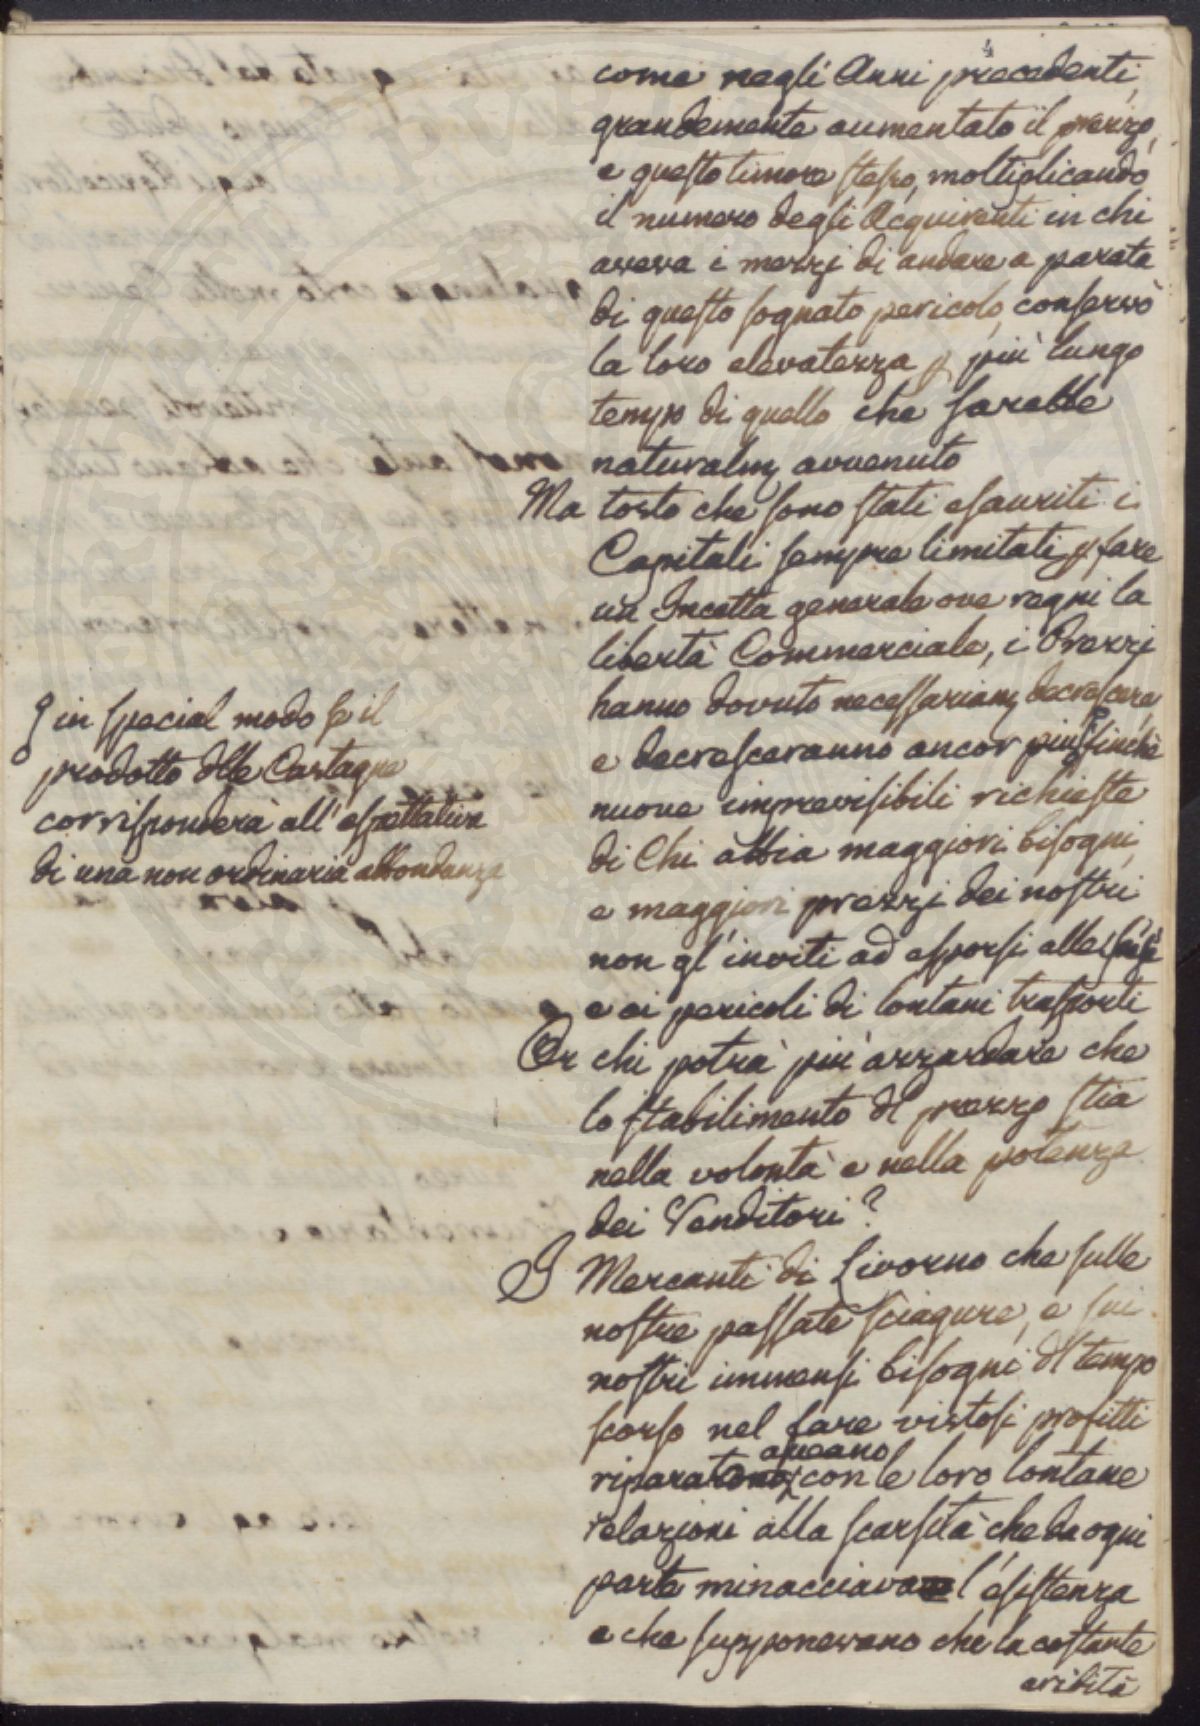 4
come negli Anni precedenti,
grandemente aumentato il prezzo,
e questo timore stesso, moltiplicando
il numero degli Acquirenti in chi
aveva i mezzi di andare a parata
di questo sognato pericolo, conservò
la loro elevatezza p più lungo
tempo di quello che sarebbe
naturalm avvenuto
Ma tosto che sono stati esauriti i
Capitali sempre limitati p fare
un Incetta generale ove regni la
libertà Commerciale, i Prezzi
hanno dovuto necessariam decrescere,
e decresceranno ancor più finchè
nuove imprevisibili richieste
di Chi abbia maggiori bisogni,
e maggiori prezzi dei nostri
non gl'inviti ad esporsi alle spese
e ai pericoli di lontani trasporti
Or chi potrà più azzardare che
lo stabilimento del prezzo stia
nella volontà e nella potenza
dei Venditori?
I Mercanti di Livorno che sulle
nostre passate sciagure, e sui
nostri immensi bisogni del tempo
scorso nel fare vistosi profitti
aveano
riparato con le loro lontane
relazioni alla scarsità che da ogni
parte minacciava l'esistenza
e che supponevano che la costante
aridità
in special modo se il
prodotto delle Castagne
corrisponderà all'espettativa
di una non ordinaria abbondanza